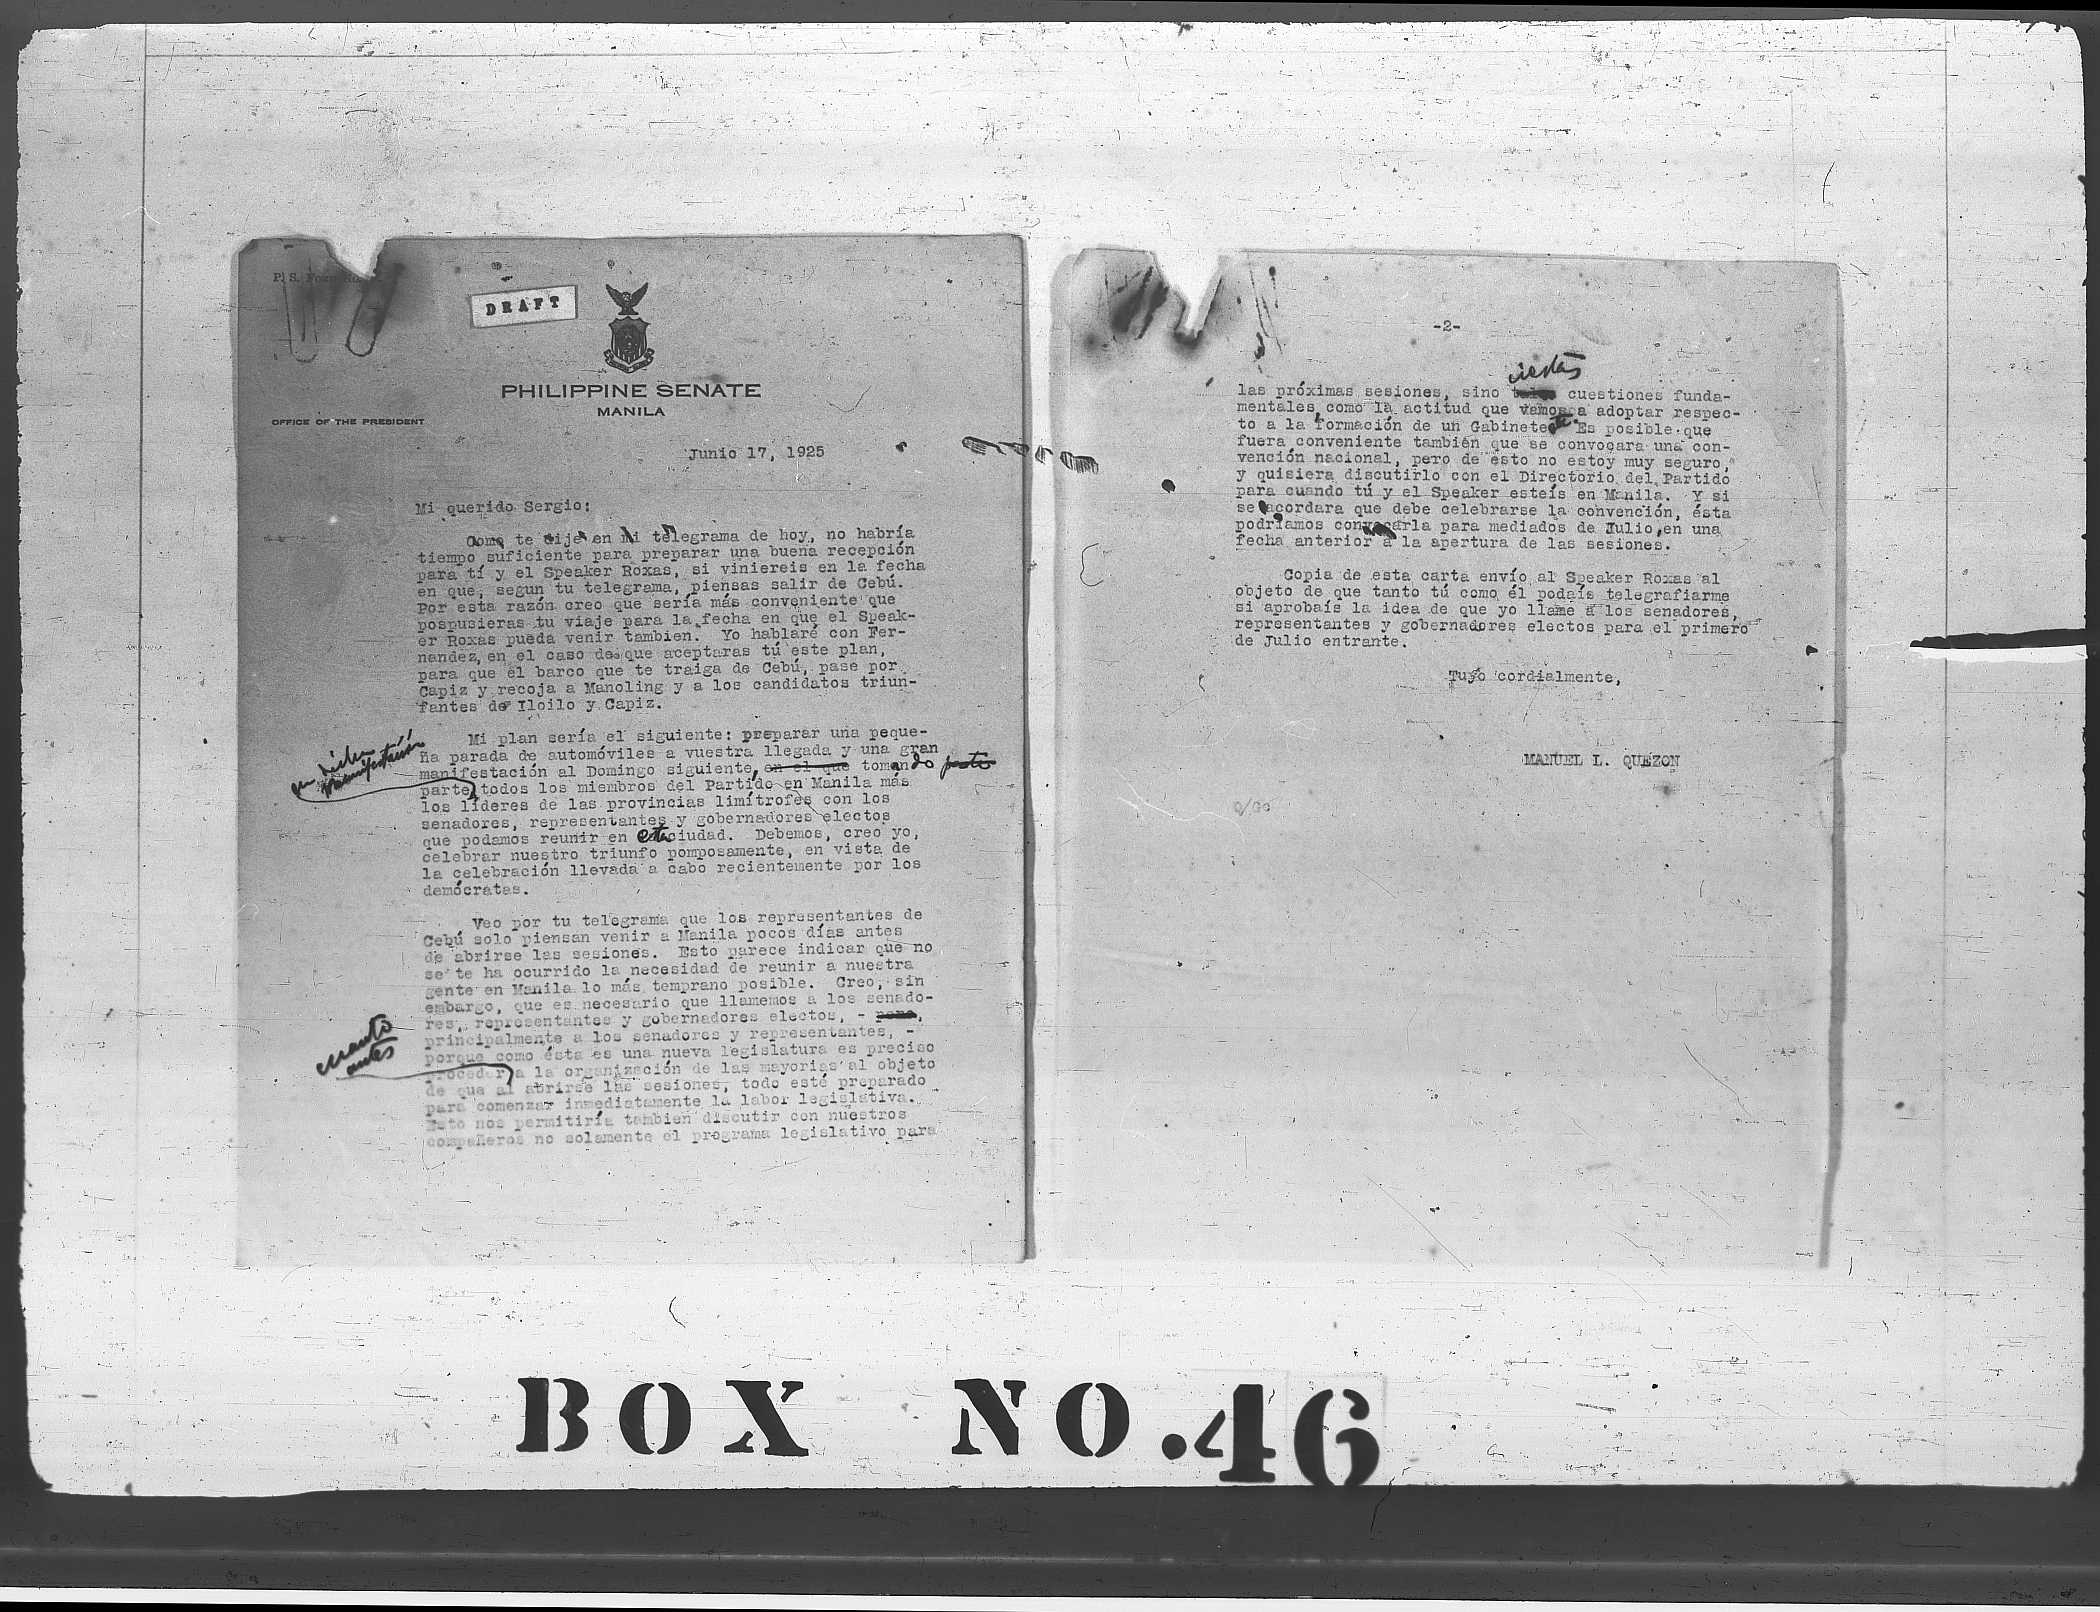 P. S. Form No.
DRAFT
PHILIPPINE SENATE
MANILA
OFFICE OF THE PRESIDENT
Junio 17, 1925
Mi querido Sergio:
Como te dije en mi telegrama de hoy, no habría
tiempo suficiente para preparar una buena recepción
para tí y el Speaker Roxas, si viniereis en la fecha
en que, segun tu telegrama, piensas salir de Cebú.
Por esta razón creo que sería más conveniente que
pospusieras tu viaje para la fecha en que el Speak-
er Roxas pueda venir tambien. Yo hablaré con Fer-
nandez, en el caso de que aceptaras tú este plan,
para que el barco que te traiga de Cebú, pase por
Capiz y recoja a Manoling y a los candidatos triun-
fantes de Iloilo y Capiz.
Mi plan sería el siguiente: preparar una peque-
ña parada de automóviles a vuestra llegada y una gran
manifestación al Domingo siguiente, en el que tomando parte
en dicha
manifestación
parte, todos los miembros del Partido en Manila más
los líderes de las provincias limítrofes con los
senadores, representantes y gobernadores electos
que podamos reunir en esta ciudad. Debemos, creo yo,
celebrar nuestro triunfo pomposamente, en vista de
la celebración llevada a cabo recientemente por los
demócratas.
Veo por tu telegrama que los representantes de
Cebú solo piensan venir a Manila pocos días antes
de abrirse las sesiones. Esto parece indicar que no
se te ha ocurrido la necesidad de reunir a nuestra
gente en Manila lo más temprano posible. Creo, sin
embargo, que es necesario que llamemos a los senado-
res, representantes y gobernadores electos, -
principalmente a los senadores y representantes, -
porque como ésta es una nueva legislatura es preciso
cuanto
antes
proceder a la organización de las mayorias al objeto
de que al abrirse las sesiones, todo esté preparado
para comenzar inmediatamente la labor legislativa.
Esto nos permitiría tambien discutir con nuestros
compañeros no solamente el programa legislativo para
-2-
ciertas
las próximas sesiones, sino cuestiones funda-
mentales, como la actitud que vamos a adoptar respec-
to a la formación de un Gabinete etc. Es posible que
fuera conveniente también que se convocara una con-
vención nacional, pero de esto no estoy muy seguro,
y quisiera discutirlo con el Directorio del Partido
para cuando tú y el Speaker esteís en Manila. Y si
se acordara que debe celebrarse la convención, ésta
podríamos convocarla para mediados de Julio, en una
fecha anterior a la apertura de las sesiones.
Copia de esta carta envío al Speaker Roxas al
objeto de que tanto tú como él podaís telegrafiarme
si aprobaís la idea de que yo llame a los senadores,
representantes y gobernadores electos para el primero
de Julio entrante.
Tuyo cordialmente,
MANUEL L. QUEZON
BOX NO. 46